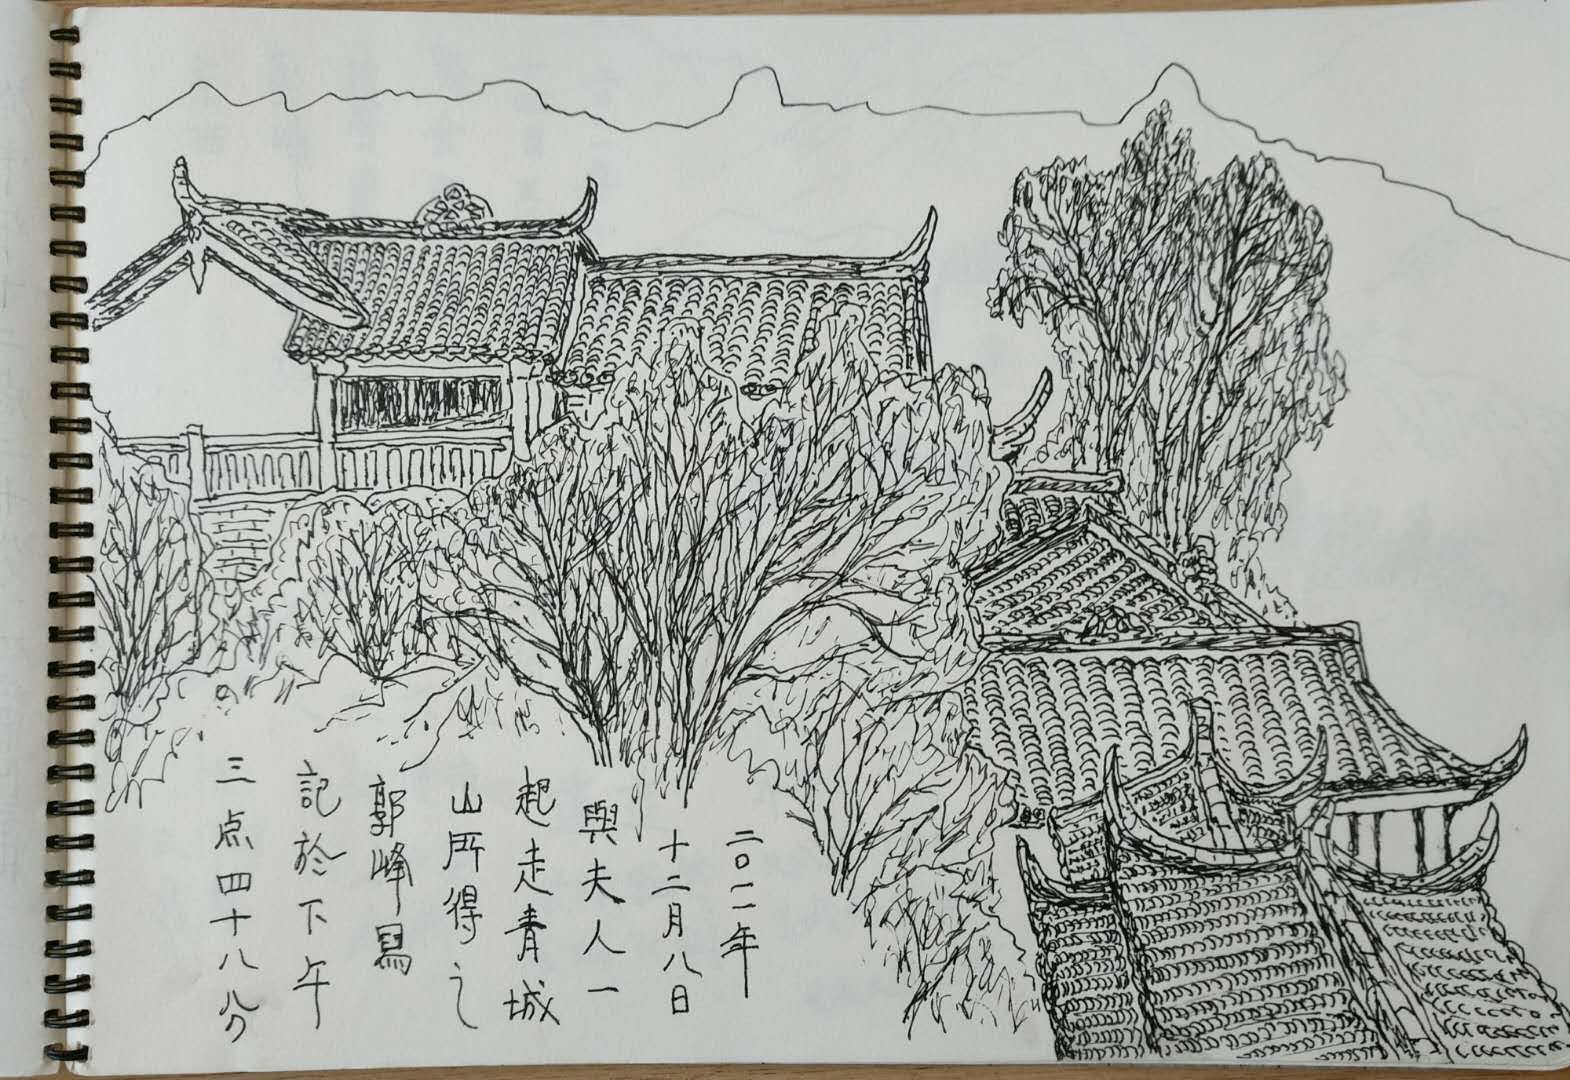 二〇一一年
十二月八日
與夫人一
起走青城
山所得之
郭峰寫
記於下午
三点四十八分